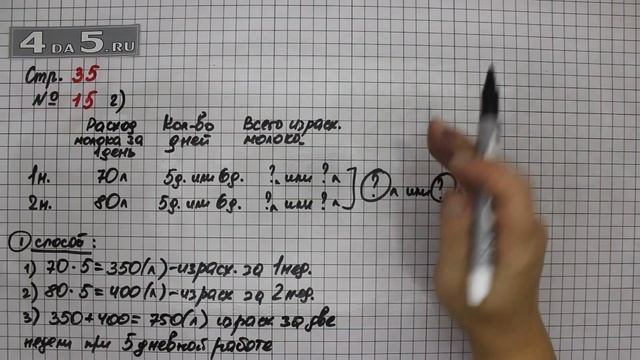 4 DA 5.RU
Стр. 35
№ 15 г)
Расход Кол-во Всего израсх.
молока за дней молоко.
1 день
1н. 70л 5д. или 6д. ?л или ?л
2н. 80л 5д. или 6д. ?л или ?л ? л или ?
1 способ:
1) 70·5=350(л)-израсх. за 1 нед.
2) 80·5=400(л)-израсх за 2 нед.
3) 350+400=750(л) израсх за две
недели при 5 дневной работе